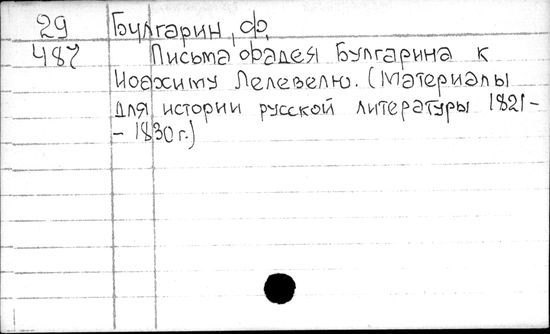 29 Булгарин, Ф.
487 Письма Фадея Булгарина к
Иоахиму Лелевелю. (Материалы
для истории русской литературы 1821-
- 1830 г.)